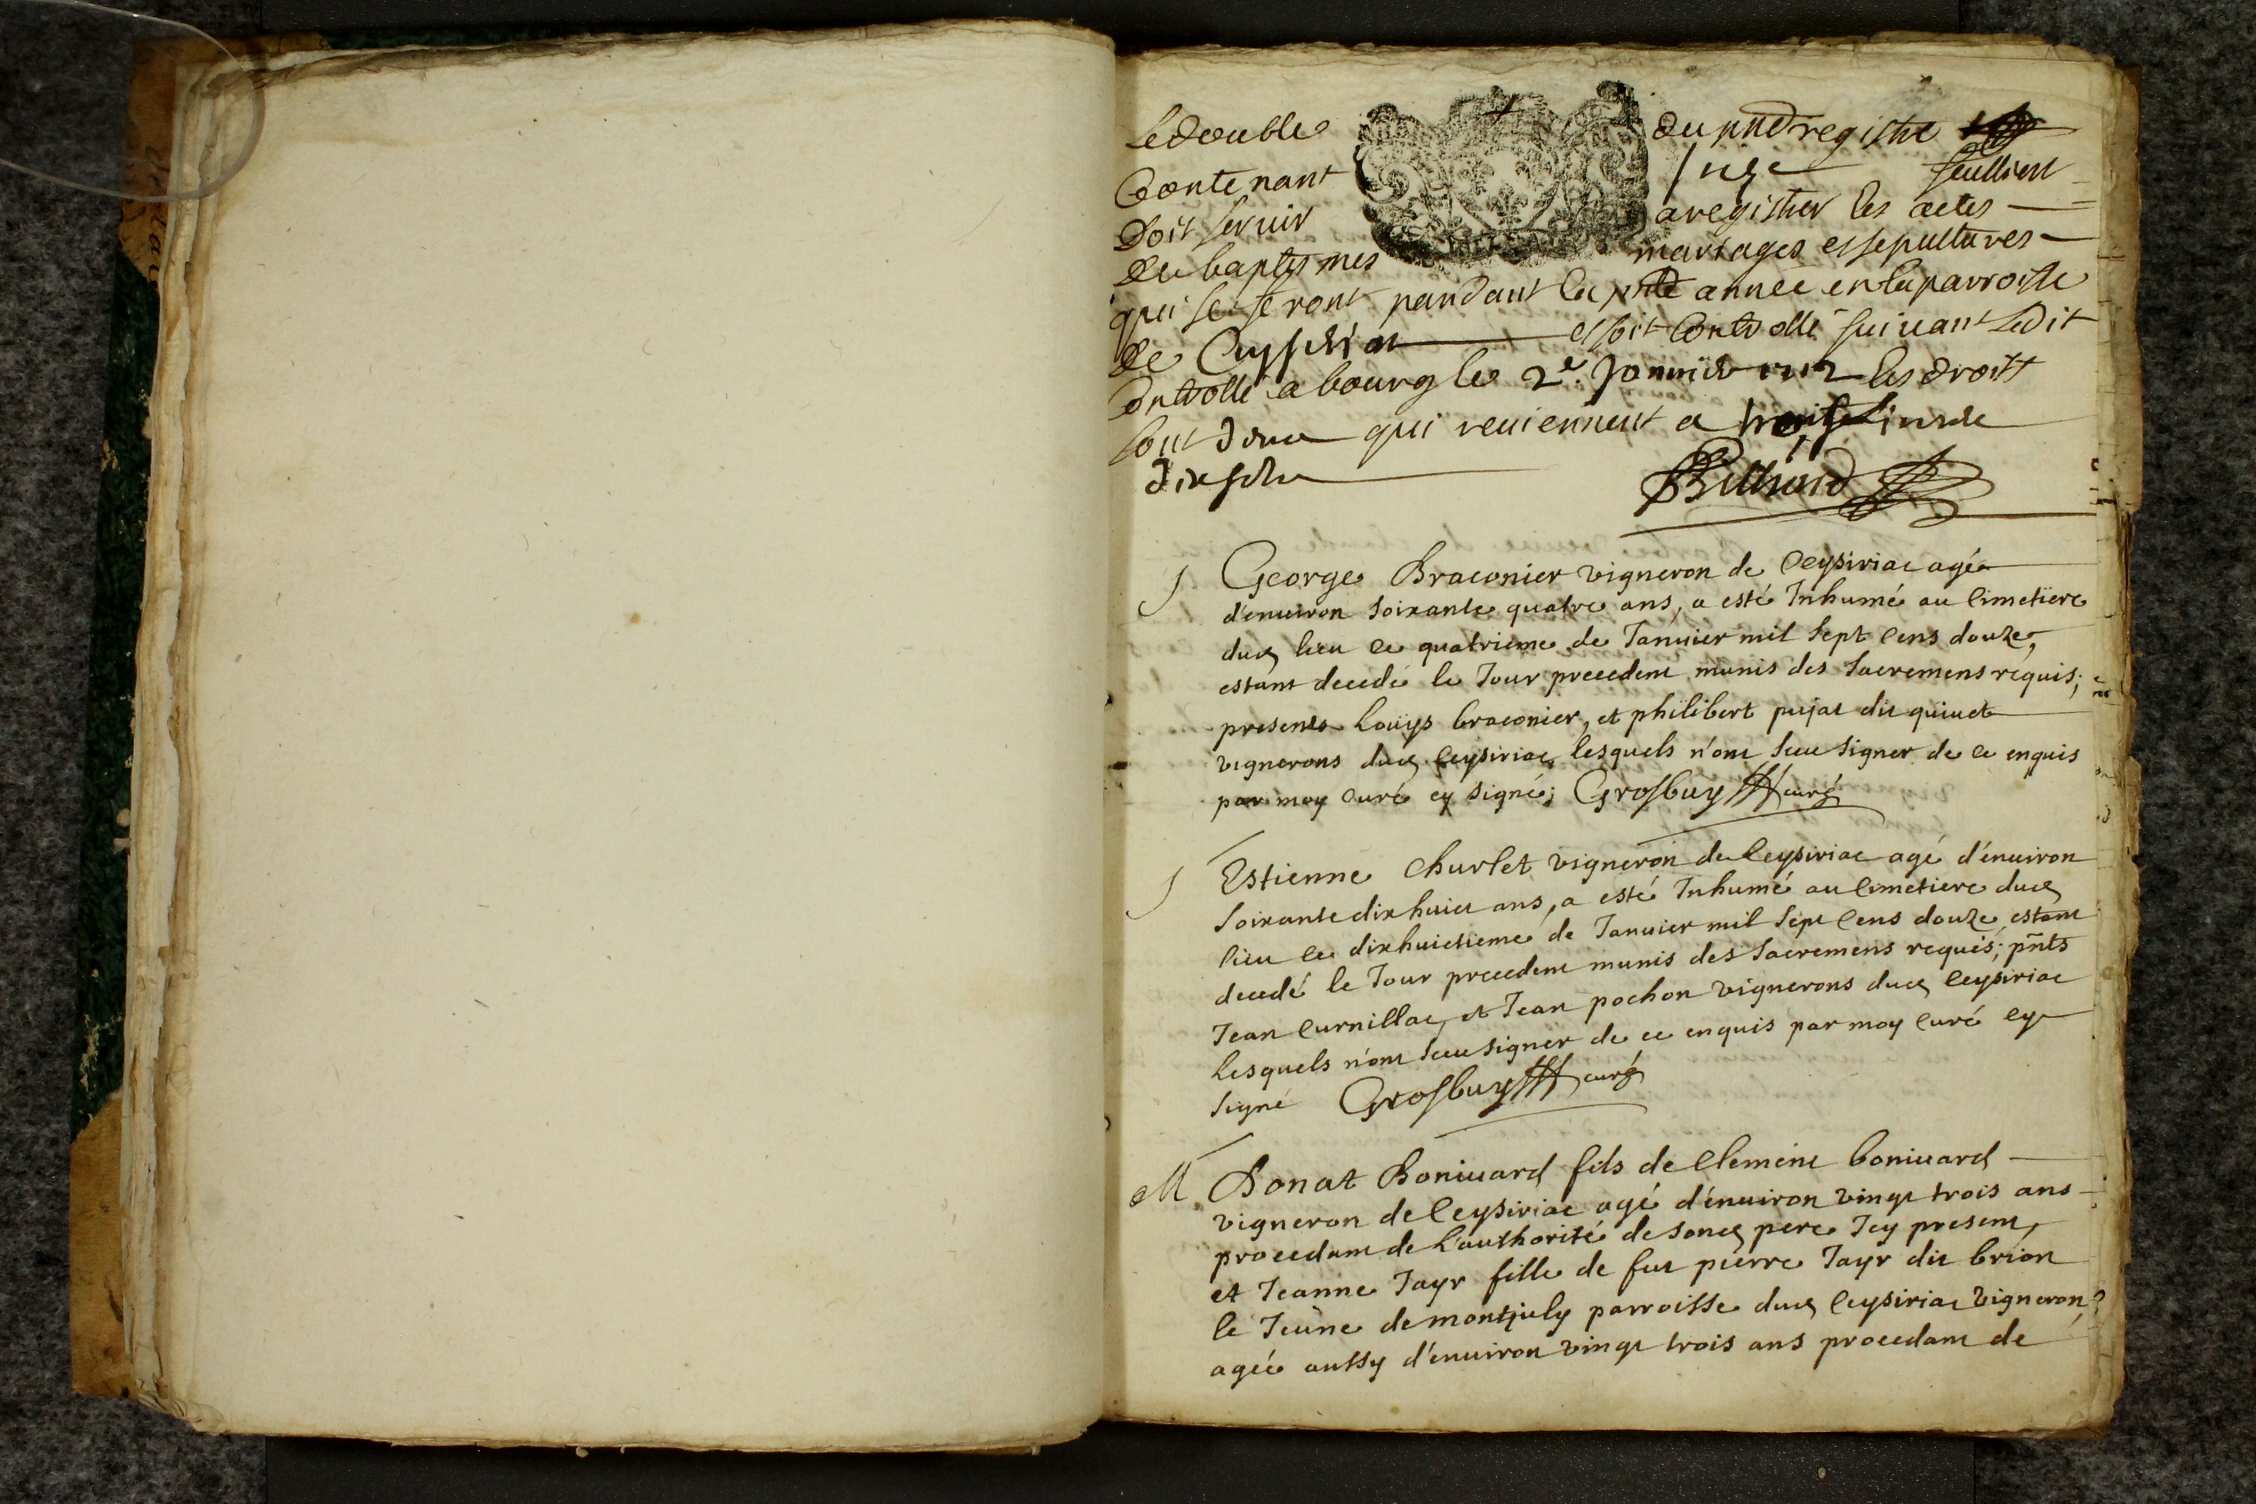 Le double du pnt registre
Contenant seize feulliets
Doit servir a registrer les actes
de baptesmes mariages et sepultures
qui se feront pandant la pnte année en la parroisse
de Ceyseriat et soit Controllé suivant ledit
Controllé a bourg le 2e. Janvier 1712 les droits
sont deux qui reviennent a livre
dix sols
S George Braconier vigneron de Ceysiriac agé
d'enuiron soixante quatre ans, a esté Inhumé au Cimetiere
dud lieu le quatrieme de Januier mil sept cens douze,
estant decedé le Jour precedent munis des sacremens requis;
presents Louys braconier, et philibert pujat dit quinet
vignerons dud Ceysiriac lesquels n'ont sceu signer de ce enquis
par moy curé cy signé; Grosbuy curé
S Estienne Churlet vigneron de Ceysiriac agé d'enuiron
soixante dix huict ans, a esté Inhumé au Cimetiere dud
lieu le dixhuictieme de Januier mil sept cens douze, estant
decedé le Jour precedent munis des sacremens requis; pñts
Jean Curnillac, et Jean pochon vignerons dud Ceysiriac
lesquels n'ont sceu signer de ce enquis par moy curé cy
signé Grosbuy curé
M Donat Boniuard fils de Clement boniuard
vigneron de Ceysiriac agé d'enuiron vingt trois ans
procedant de L'authorité de sond pere Icy present,
et Jeanne Jayr fille de fut pierre Jayr dit brion
le Jeune de montjuly parroisse dud Ceysiriac vigneron,
agée aussy d'enuiron vingt trois ans procedant de